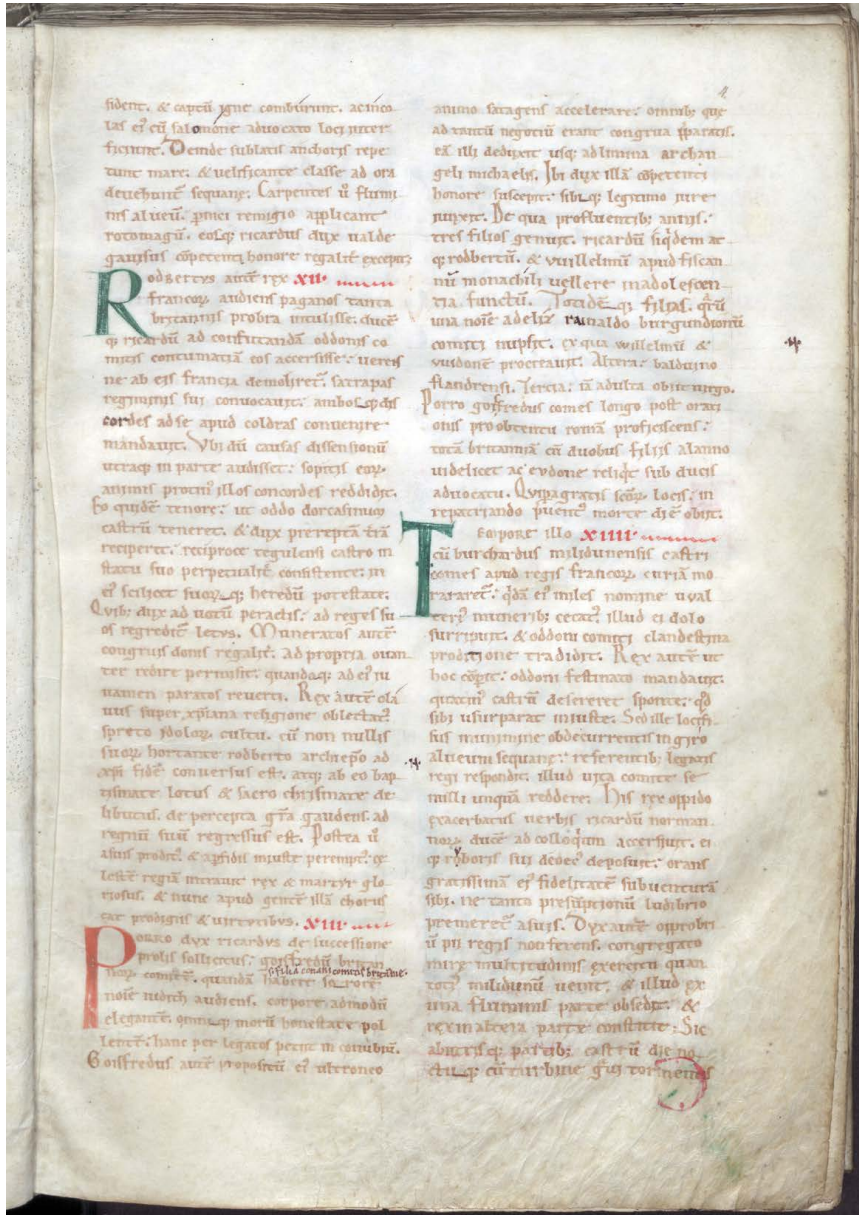 sident. & captū igne comburunt. ac inco
las ei' cū salomone advocato loci inter
ficiunt. Deinde sublatis anchoris repe
tunt mare. & velificante classe ad ora
devehunt sequanę. Carpentes ū flumi
nis alueū. pinici remigio applicant
rotomagū. eosq; ricardus dux valde
gavisus cōpetenti honore regalit excepit;
Rodbertus autē rex XII.
francoꝝ audiens paganos tanta
britannis probra intulisse. ducē
q; ricardū ad confutandā oddonis co
mitis contumatiā eos accersisse. verens
ne ab eis francia demoliret. satrapas
regiminis sui convocavit. ambosq; dis
cordes ad se apud coldras convenire
mandavit. Vbi dū causas dissensionū
utraq; in parte audisset. sopitis eoꝝ
animis protin' illos concordes reddidit.
Eo quidē tenore. ut oddo dorcasinum
castrū teneret. & dux prereptā trā
reciperet. reciproce tegulensi castro in
statu suo perpetualit consistente. in
ei' scilicet suoꝝq; heredū potestate.
Quib; dux ad uotū peractis. ad reges su
os regredit letus. Muneratos autē
congruis donis regalit. ad propria ouan
ter redire permisit. quandoq; ad ei' iu
uamen paratos reverti. Rex autē ola
uus super xpiana religione oblectat'
spreto idoloꝝ cultu. cū non nullis
suoꝝ hortante rodberto archiepo ad
xpi fidē conversus est. atq; ab eo bap
tismate lotus & sacro chrismate de
libutus. de percepta gra gaudens. ad
regnū suū regressus est. Postea ū
a suis prodit' & a pfidis iniuste perempt'. cę
lestē regiā intravit rex & martyr glo
riosus. & nunc apud gentē illā chorus
cat prodigiis & uirtutibus. XIII
Porro dux ricardus de successione
prolis sollicitus. goiffredū britan
noꝝ comitē. quandā habere sororē
s. filiā conani comitis britānię.
noie iudith audiens. corpore admodū
elegantē. omniq; morū honestate pol
lentē. hanc per legatos petiit in conubiū.
Goisfredus autē propositū ei' ultroneo
animo satagens accelerare. omnib; que
ad tantū negociū erant congrua pparatis.
eā illi deduxit usq; ad limina archan
geli michaelis. Ibi dux illā cōpetenti
honore suscepit. sibiq; legitimo iure
iunxit. De qua profluentib; annis.
tres filios genuit. ricardū siqdem at
q; rodbertū. & vuillelmū apud fiscan
nū monachili vellere in adolescen
tia functū. Totidēq; filias. qrū
una noie adeliz rainaldo burgundionū
comiti nupsit. ex qua willelmū &
vuidonē procreauit. Altera. balduino
flandrensi. Tercia. iā adulta obiit uirgo.
Porro goiffredus comes longo post orati
onis pro obtentu romā proficiscens.
totā britanniā cū duobus filiis alanno
uidelicet ac evdone reliqt sub ducis
advocatu. Quipagratis scoꝝ locis. in
repatriando puent' morte diē obiit.
Tempore illo XIIII
cū burchardus milidunensis castri
comes apud regis francoꝝ curiā mo
raretet. qdā ei' miles nomine uual
teri' munerib; cecat'. illud ei dolo
surripuit. & oddoni comiti clandestina
proditione tradidit. Rex autē ut
hoc cōpit. oddoni festinato mandauit.
quatin' castrū desereret sponte. qd
sibi usurparat iniuste. Sed ille loci fi
sus munimine ob decurrentis in giro
alueum sequanę. referentib; legatis
regi respondit. illud uiva comite se
nulli unquā reddere. His rex oppido
exacerbatus uerbis ricardū norman
noꝝ ducē ad colloqium accersiuit. ei
q; roboris sui dedec' deposuit. orans
gratissimā ei' fidelitatē subuenturā
sibi. ne tanto presūptionū ludibrio
premeret a suis. Dux autē opprobri
ū pii regis non ferens. congregato
mirę multitudinis exercitu quan
toti' milidunū uenit. & illud ex
una fluminis parte obsedit. &
rex in altera parte constitit. Sic
abintisq; partib; castrū die no
ctuq; cū turbine gius tormentis